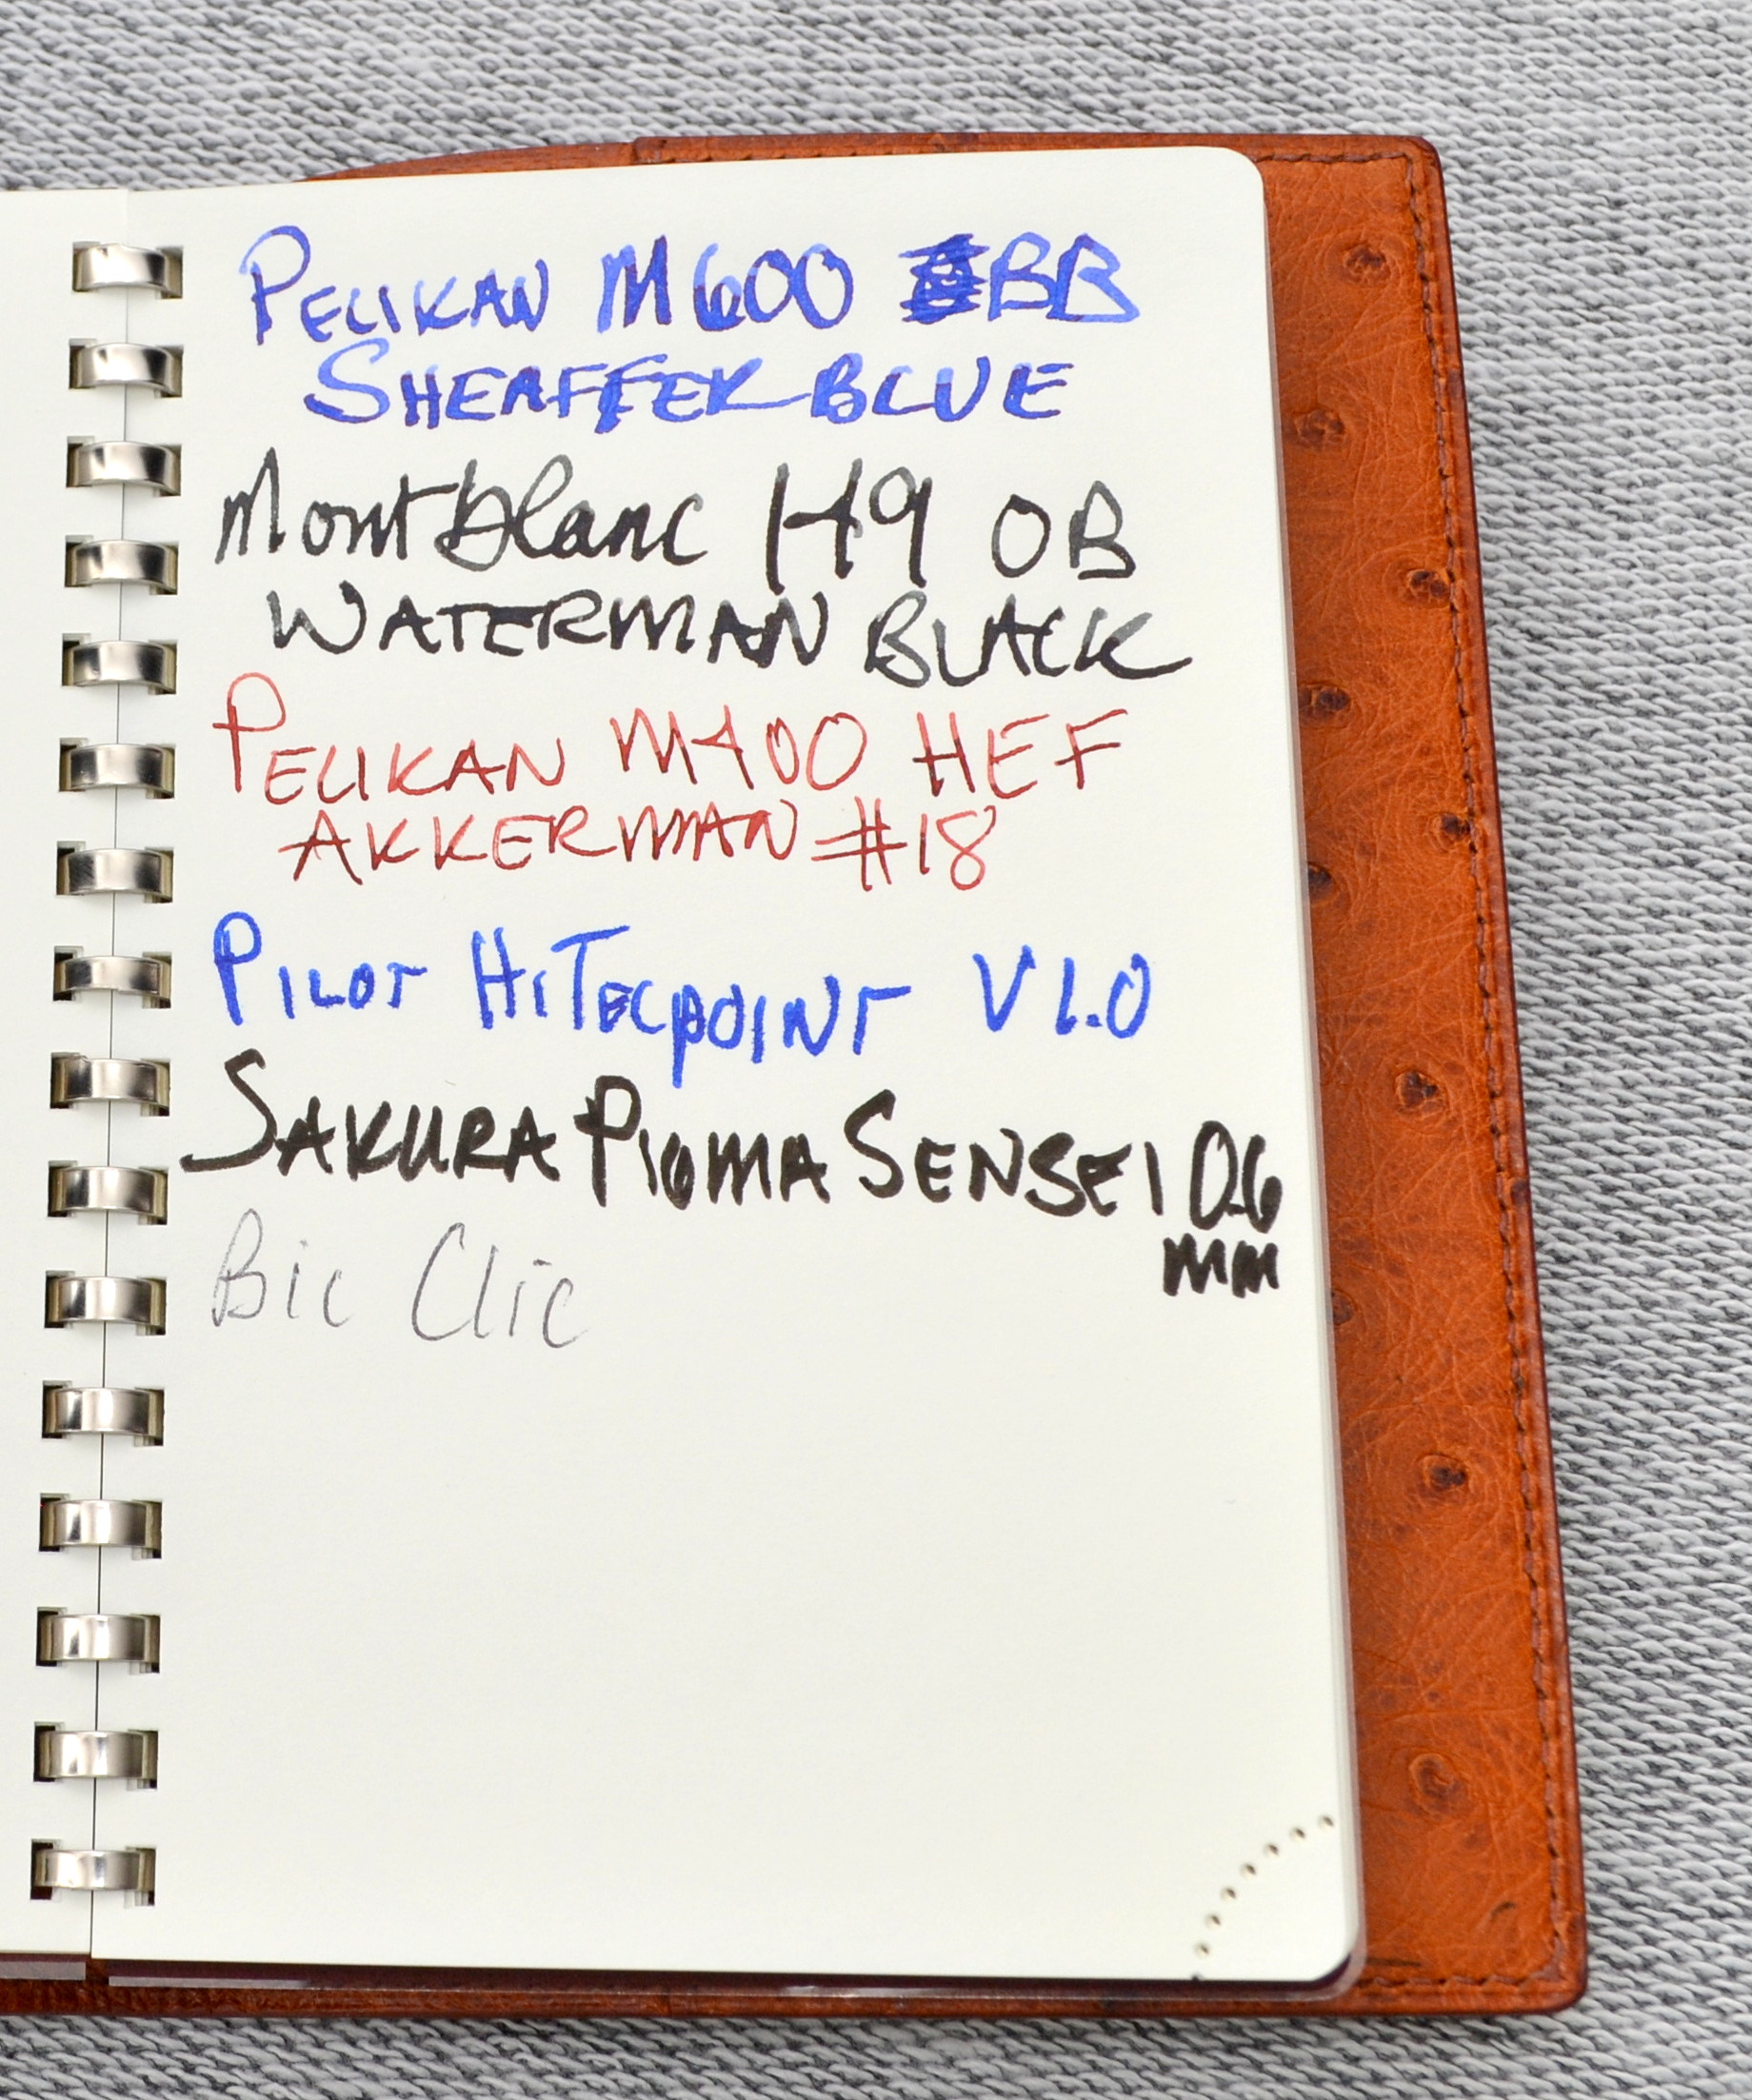 PELIKAN M600 BB
SHEAFFER BLUE
Montblanc 149 OB
WATERMAN BLACK
PELIKAN M400 HEF
AKKERMAN #18
PILOT HiTECPOINT V1.0
SAKURA PIGMA SENSEI 0.6
mm
Bic Clic